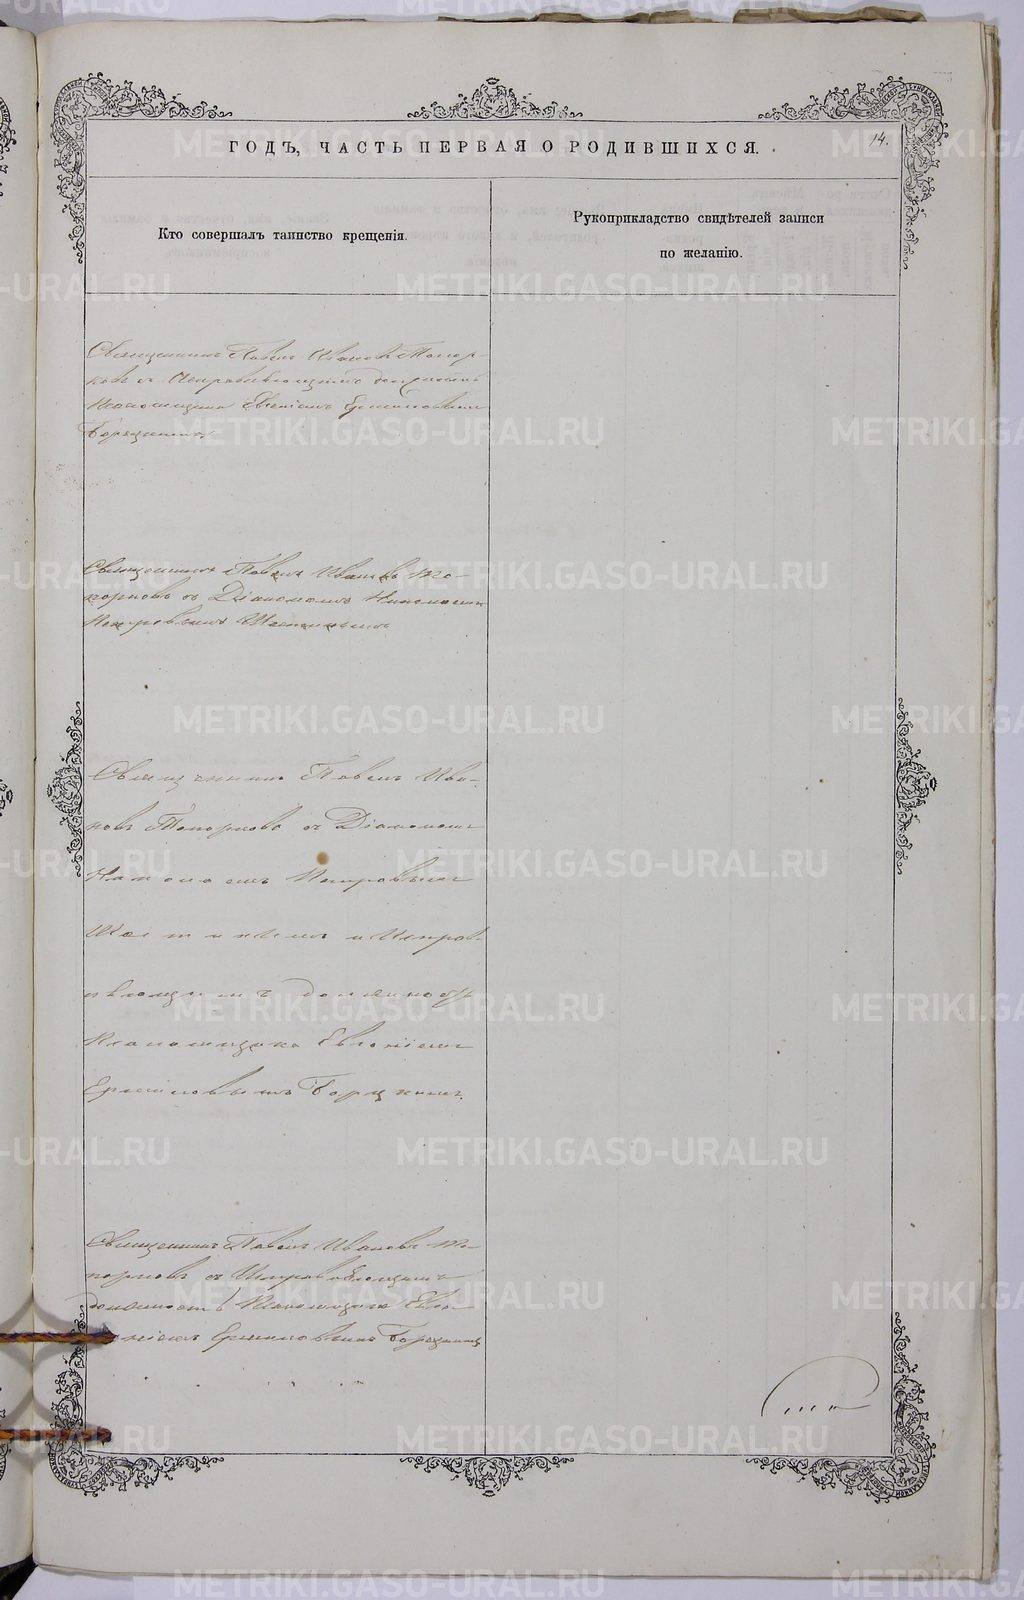 14.
ГОДЪ, ЧАСТЬ ПЕРВАЯ О РОДИВШИХСЯ.
Кто совершалъ таинство крещенія.
Рукоприкладство свидѣтелей записи
по желанію.
Священникъ Павелъ Ивановъ Топор-
ковъ съ Исправляющимъ должность
Псаломщика Евгеніемъ Ермиловымъ
Священникъ Павелъ Ивановъ То-
порковъ съ Діакономъ
Петровымъ
Священникъ Павелъ Ива-
новъ Топорковъ съ Діакономъ
Петровымъ
и Исправ-
ляющимъ должность
Псаломщика Евгеніемъ
Ермиловымъ
Священникъ Павелъ Ивановъ То-
порковъ съ Исправляющимъ
должность Псаломщика Евге-
ніемъ Ермиловымъ
METRIKI.GASO-URAL.RU